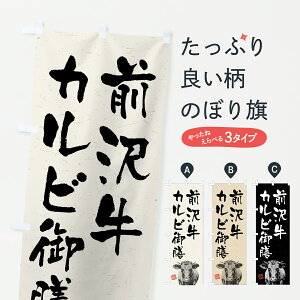 前沢牛
カルビ御膳
たっぷり
良い柄
のぼり旗
やったね
えらべる
3タイプ
A
B
C
前沢牛
カルビ御膳
前沢牛
カルビ御膳
前沢牛
カルビ御膳